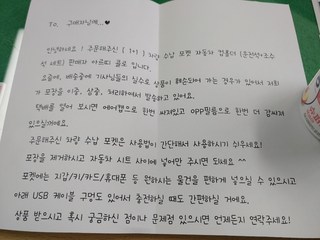 To. 고객님께... ♥
안녕하세요! 주문해주신 (1+1) 차량 수납 포켓 자동차 컵홀더 (운전석+조수
석 세트) 판매자 아르피 쿨로 입니다.
요즘에, 배송중에 기사님들의 실수로 상품이 훼손되어 가는 경우가 있어서 저희
가 포장을 이중, 삼중, 처리하여서 발송하고 있어요.
택배를 열어 보시면 에어캡으로 한번 더 감싸져있고 OPP필름으로 한번 더 감싸져
있으실꺼에요.
주문해주신 차량 수납 포켓은 사용법이 간단해서 사용하시기 쉬우세요!
포장을 제거하시고 자동차 시트 사이에 넣어만 주시면 되세요 ^^
포켓에는 지갑/키/카드/휴대폰 등 원하시는 물건을 편하게 넣으실 수 있으시고
아래 USB 케이블 구멍도 있어서 충전하실 때도 간편하실 거에요.
상품 받으시고 혹시 궁금하신 점이나 문제점 있으시면 언제든지 연락주세요!